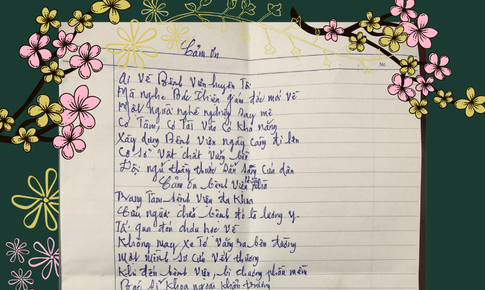 Cảm ơn
No.
Ai Về Bệnh Viện huyện Tô
Mà nghe Bác Thiện giám đốc mới về
Một người nghề nghiệp say mê
Có Tâm, Có Tài Và Có Khả năng
Xây dựng Bệnh Viện ngày Càng đi lên
Cơ Sở Vật chất Vững bền
Đội ngũ thầy thuốc Sẵn Sàng Của dân
Cảm ơn bệnh Viện
Trung Tâm bệnh Viện đa Khoa
Cứu người chữa bệnh đó là lương y
Tôi qua đón cháu học Về
Không may Xe Tô Văng ra bên đường
Một mình Sơ Cứu Vết thương
Khi đến bệnh Viện, bị chương phần mềm
Bác Sĩ Khoa ngoại Khẩn Trương